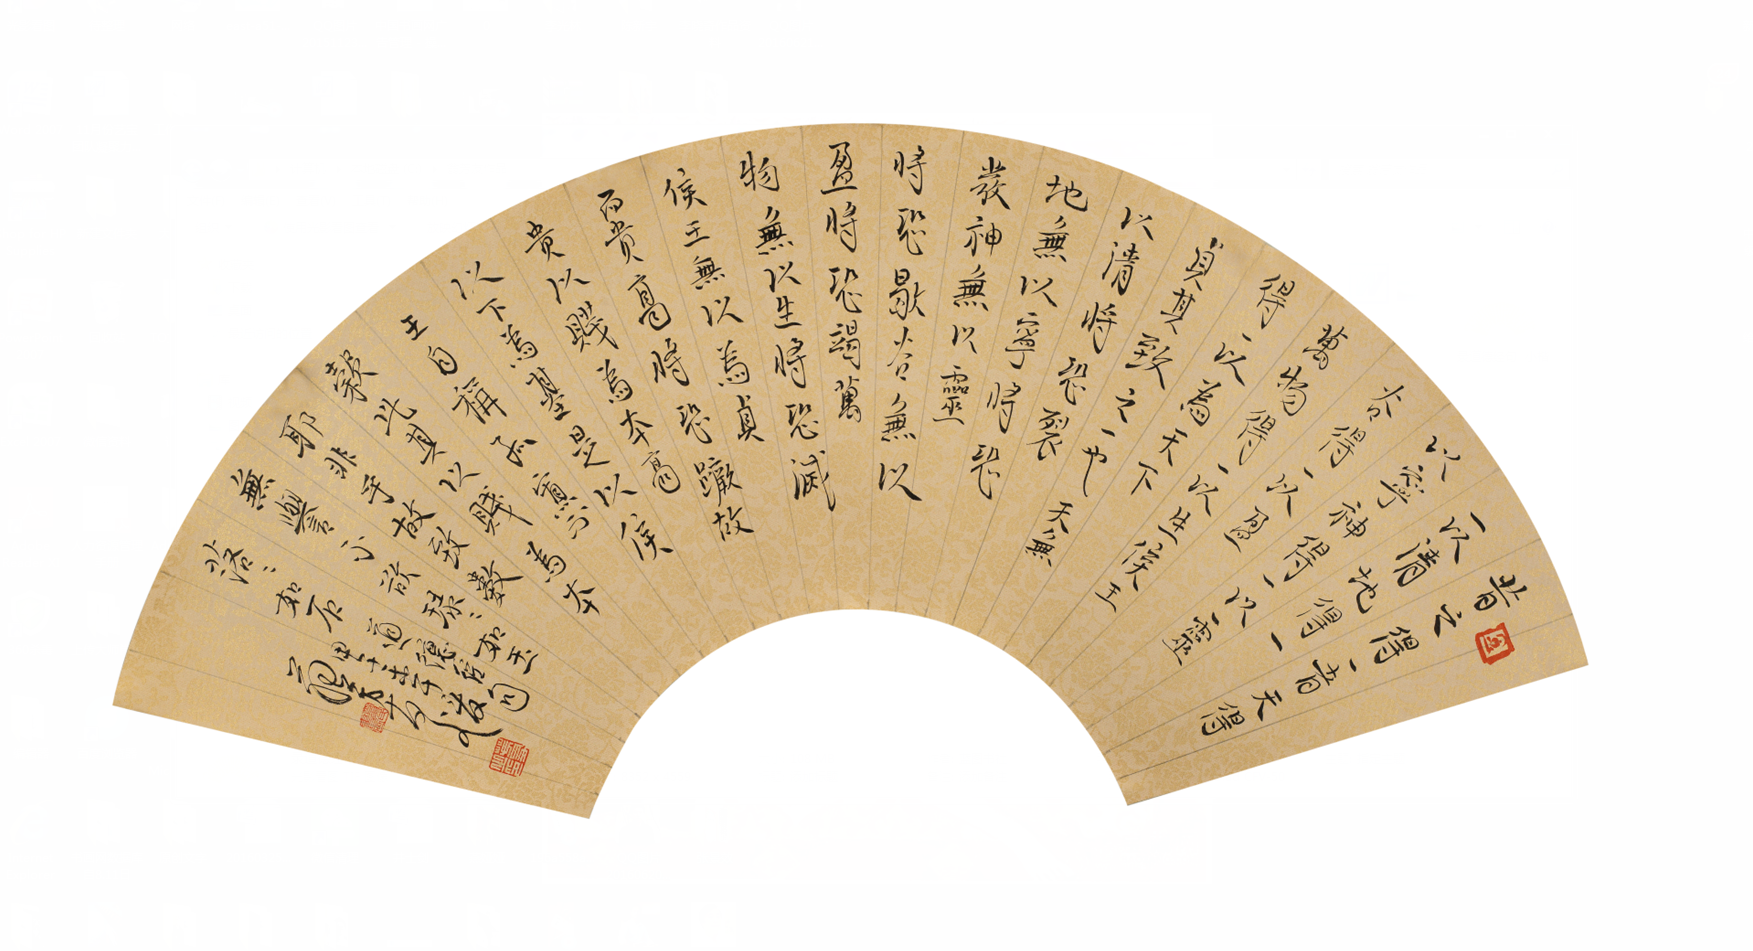 昔之得一者天得
一以清地得一
以寧神得一以靈
谷得一以盈
萬物得一以生侯王
得一以為天下
貞其致之一也天無
以清將恐裂
地無以寧將恐
發神無以靈
將恐歇谷無以
盈將恐竭萬
物無以生將恐滅
侯王無以為貞
而貴高將恐蹶故
貴以賤為本高
以下為基是以侯
王自稱孤寡不
穀此其以賤為本
耶非乎故致數
無譽不欲琭琭如玉
珞珞如石道德經句